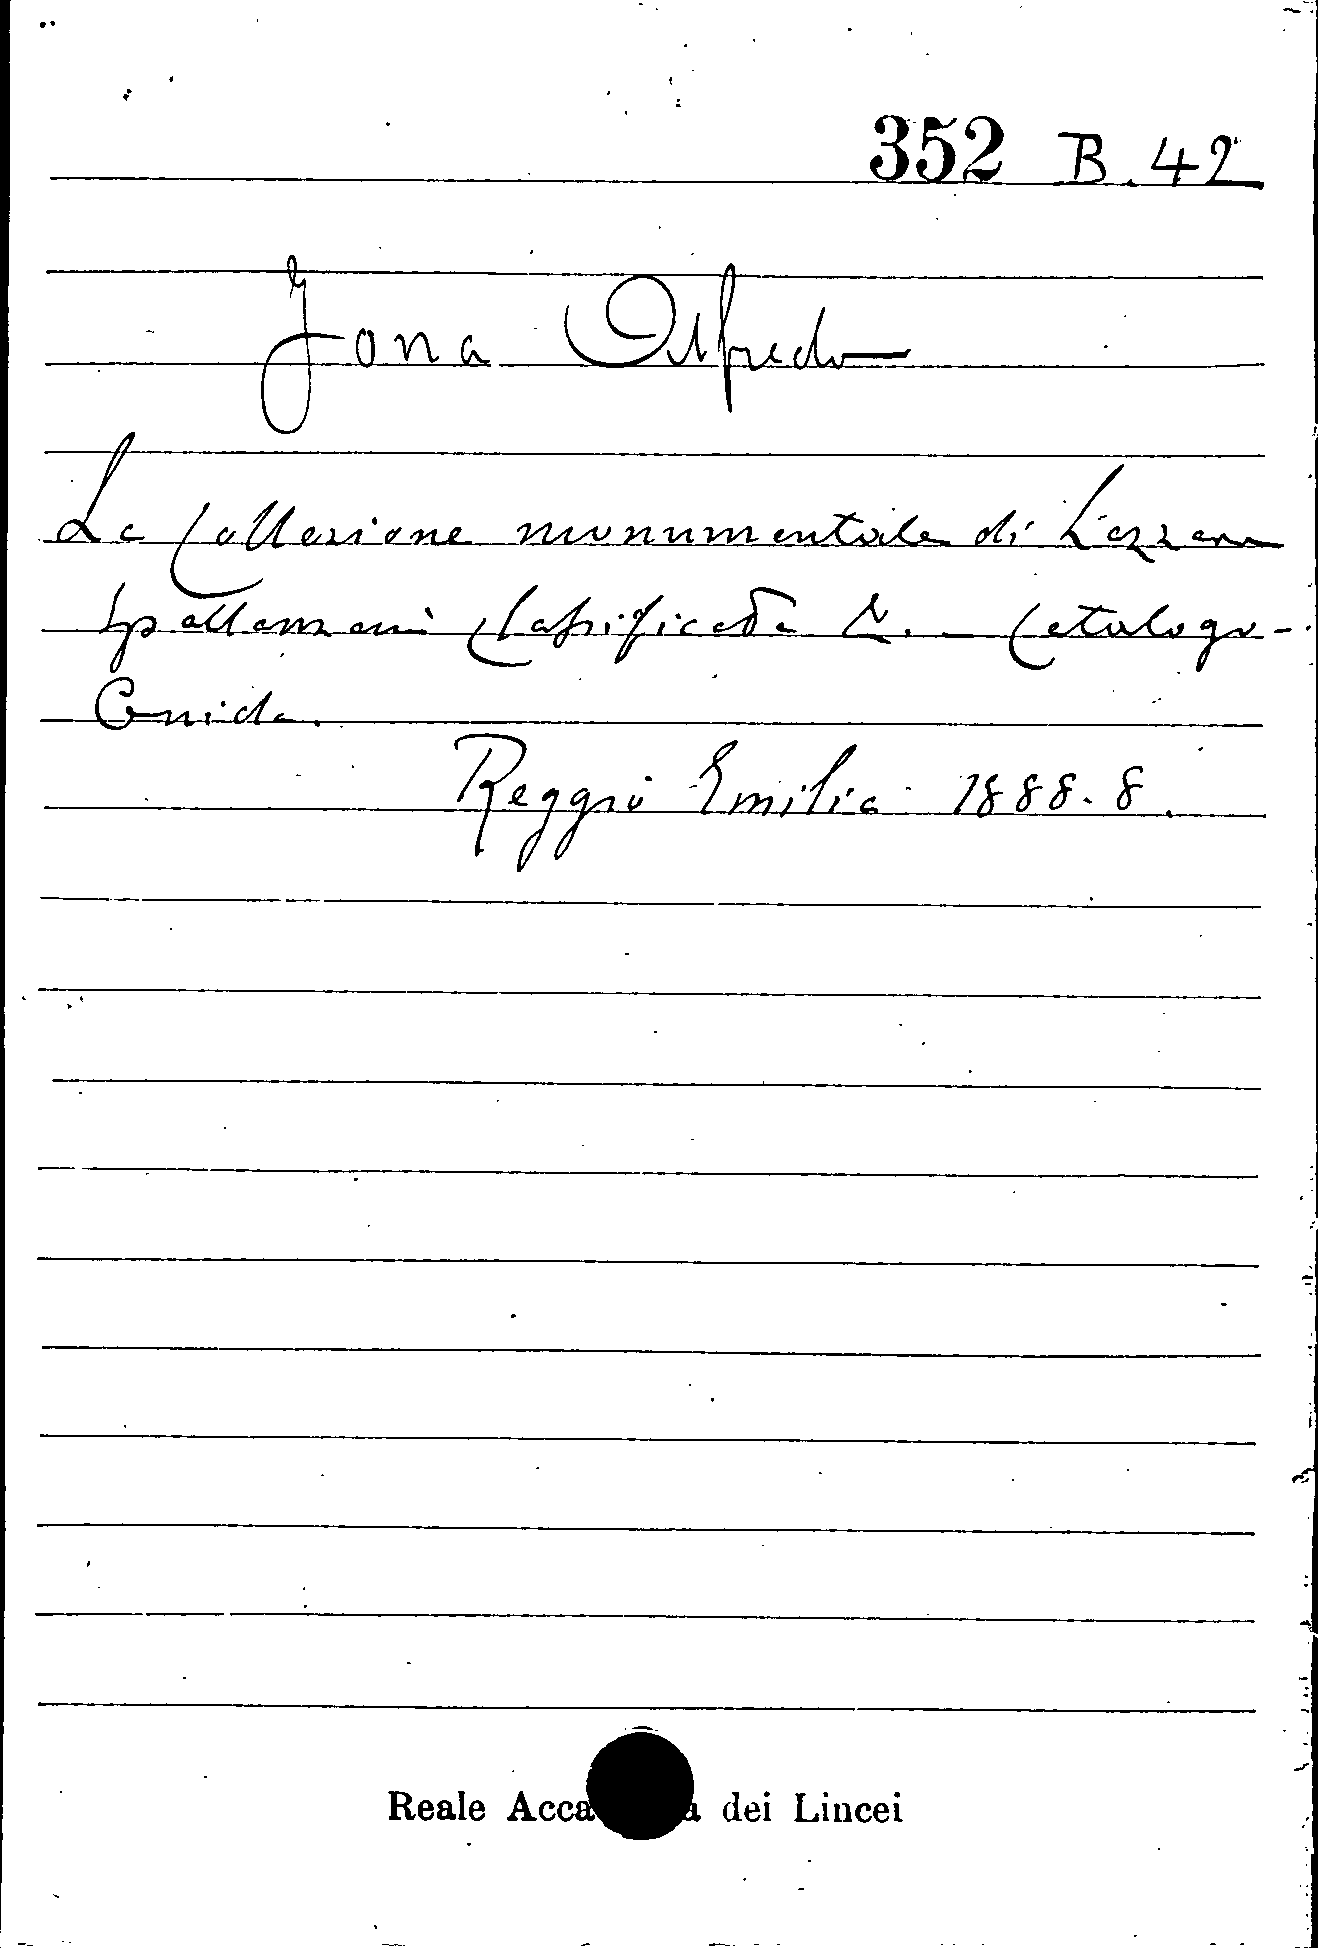 352 B. 42
Jona Alfredo
La Collezione monumentale di Lazzaro
Spallanzani Classificata &. - Catalogo-
Guida.
Reggio Emilia 1888. 8.
Reale Acca a dei Lincei